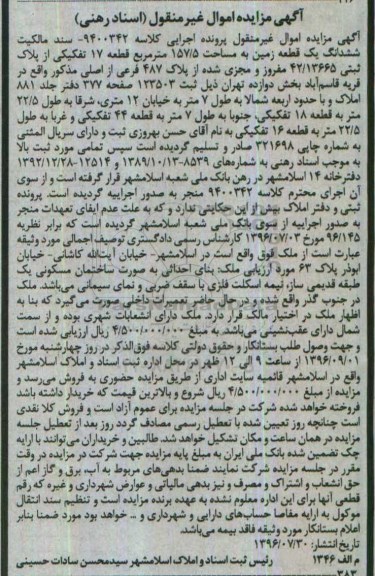 آگهی مزایده اموال غیرمنقول (اسناد رهنی)
آگهی مزایده اموال غیرمنقول پرونده اجرایی کلاسه ۹۴۰۰۳۴۲- سند مالکیت
ششدانگ یک قطعه زمین به مساحت ۱۵۷/۵ مترمربع قطعه ۱۷ تفکیکی از پلاک
ثبتی ۴۲/۱۳۶۶۵ مفروز و مجزی شده از پلاک ۴۸۷ فرعی از اصلی مذکور واقع در
قریه قاسم‌آباد بخش دوازده تهران ذیل ثبت ۱۲۳۵۰۳ صفحه ۳۷۷ دفتر جلد ۸۸۱
املاک و با حدود اربعه شمالا به طول ۷ متر به خیابان ۱۲ متری، شرقا به طول ۲۲/۵
متر به قطعه ۱۸ تفکیکی، جنوبا به طول ۷ متر به قطعه ۴۴ تفکیکی و غربا به طول
۲۲/۵ متر به قطعه ۱۶ تفکیکی به نام آقای حسن بهروزی ثبت و دارای سریال المثنی
به شماره چاپی ۳۲۱۶۹۸ صادر و تسلیم گردیده است سپس تمامی مورد ثبت بالا
به موجب اسناد رهنی به شماره‌های ۸۵۳۹-۱۳۸۹/۱۰/۱۳ و ۱۲۵۱۴-۱۳۹۲/۱۲/۲۸
دفترخانه ۱۴ اسلامشهر در رهن بانک ملی شعبه اسلامشهر قرار گرفته است و از سوی
آن اجرای محترم کلاسه ۹۴۰۰۳۴۲ منجر به صدور اجراییه گردیده است. پرونده
ثبتی و دفتر املاک بیش از این حکایتی ندارد و که به علت عدم ایفای تعهدات منجر
به صدور اجراییه از سوی بانک ملی شعبه اسلامشهر گردیده است که برابر نظریه
۹۶/۱۴۵ مورخ ۱۳۹۶/۰۷/۰۳ کارشناس رسمی دادگستری توصیف اجمالی مورد وثیقه
عبارت است از ملک فوق واقع است در اسلامشهر- خیابان آیت‌الله کاشانی- خیابان
ابوذر پلاک ۶۳ مورد ارزیابی ملک: بنای احداثی به صورت ساختمان مسکونی یک
طبقه قدیمی ساز، نیمه اسکلت فلزی با سقف ضربی و نمای سیمانی می‌باشد. ملک
در جنوب گذر واقع شده و در حال حاضر تعمیرات داخلی صورت می‌گیرد که بنا به
اظهار ملک در اختیار مالک قرار دارد. ملک دارای انشعابات شهری بوده و از سمت
شمال دارای عقب‌نشینی می‌باشد. به مبلغ ۴/۵۰۰/۰۰۰/۰۰۰ ریال ارزیابی شده است
و جهت وصول طلب بستانکار و حقوق دولتی کلاسه فوق‌الذکر در روز چهارشنبه مورخ
۱۳۹۶/۰۹/۰۱ از ساعت ۹ الی ۱۲ ظهر در محل اداره ثبت اسناد و املاک اسلامشهر
واقع در اسلامشهر قائمیه سایت اداری از طریق مزایده حضوری به فروش می‌رسد و
مزایده از مبلغ ۴/۵۰۰/۰۰۰/۰۰۰ ریال شروع و بالاترین قیمت که خریدار داشته باشد
فروخته خواهد شده شرکت در جلسه مزایده برای عموم آزاد است و فروش کلا نقدی
است چنانچه روز تعیین شده با تعطیل رسمی مصادف گردد روز بعد از تعطیل جلسه
مزایده در همان ساعت و مکان تشکیل خواهد شد. طالبین و خریداران می‌توانند با ارایه
چک تضمین شده بانک ملی ایران به مبلغ پایه مزایده جهت شرکت در مزایده در وقت
مقرر در جلسه مزایده شرکت نمایند ضمنا بدهی‌های مربوط به آب، برق و گاز اعم از
حق انشعاب و اشتراک و مصرف و نیز بدهی مالیاتی و عوارض شهرداری و غیره که رقم
قطعی آنها برای این اداره معلوم نشده به عهده برنده مزایده است و تنظیم سند انتقال
موکول به ارایه مفاصا حساب‌های دارایی و شهرداری و ... خواهد بود مورد ضمنا بنابر
اعلام بستانکار مورد وثیقه فاقد بیمه می‌باشد.
تاریخ انتشار: ۱۳۹۶/۰۷/۳۰
م الف ۱۳۴۶ رئیس ثبت اسناد و املاک اسلامشهر سیدمحسن سادات حسینی
۳۸۳